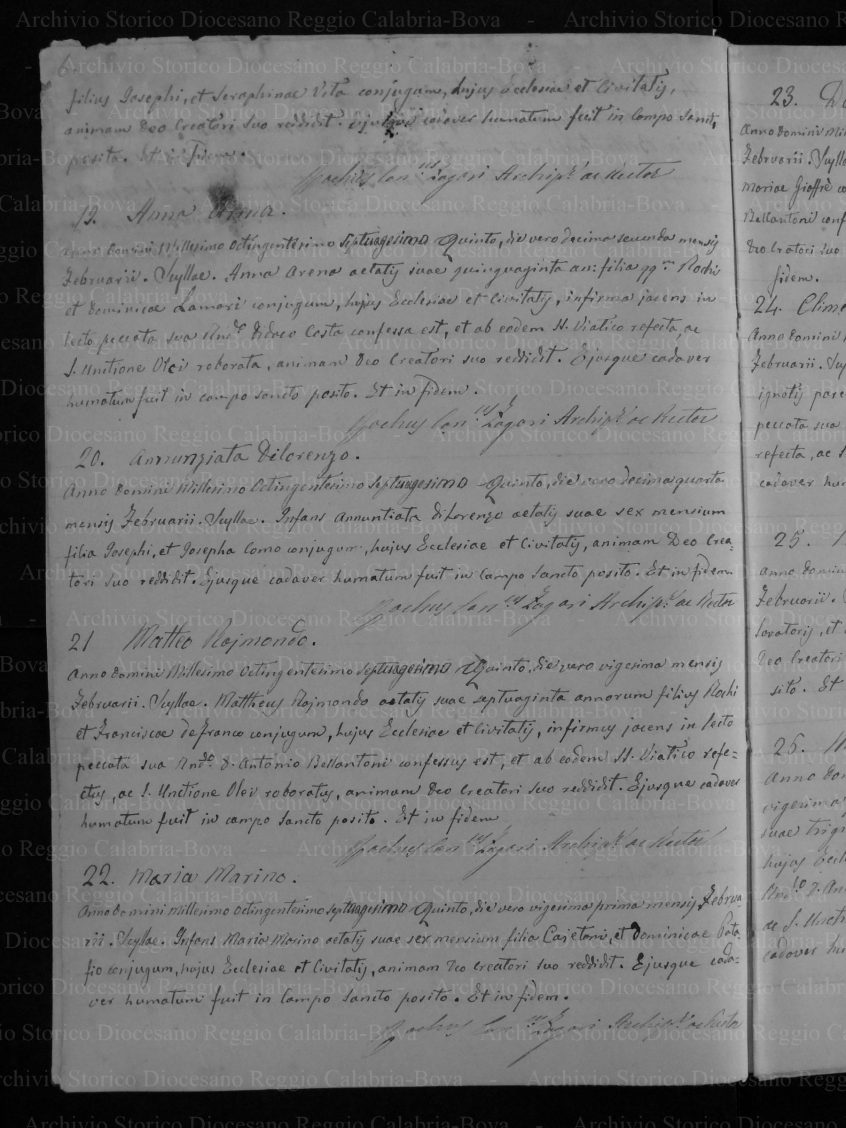 6.
filius Josephi, et Seraphinae Vita conjugum, hujus Ecclesiae et Civitatis,
animam Deo Creatori suo reddidit. Ejusque cadaver humatum fuit in Campo Sancto
posito. Et in Fidem.
Rochus Can.cus Zagari Archipr. ac Rector
19. Anna Arena.
Anno Domini Millesimo Octingentesimo Septuagesimo Quinto, die vero decima secunda mensis
Februarii. Scyllae. Anna Arena aetatis suae quinquaginta an: filia qq.m Rochi
et Dominicae Lamari conjugum, hujus Ecclesiae et Civitatis, infirma jacens in
lecto peccata sua Rnd.o Didaco Costa confessa est, et ab eodem SS. Viatico refecta, ac
S. Unctione Olei roborata, animam Deo Creatori suo reddidit. Ejusque cadaver
humatum fuit in campo sancto posito. Et in fidem.
Rochus Can.cus Zagari Archipr. ac Rector
20. Annunziata Dilorenzo.
Anno Domini Millesimo Octingentesimo Septuagesimo Quinto, die vero decima quarta
mensis Februarii. Scyllae. Infans Annuntiata diLorenzo aetatis suae sex mensium
filia Josephi, et Josepha Como conjugum, hujus Ecclesiae et Civitatis, animam Deo Crea=
tori suo reddidit. Ejusque cadaver humatum fuit in Campo Sancto posito. Et in fidem.
Rochus Can.cus Zagari Archipr. ac Rector
21 Matteo Rajmondo.
Anno Domini Millesimo Octingentesimo septuagesimo Quinto, die vero vigesima mensis
Februarii. Scyllae. Mattheus Rajmondo aetatis suae septuaginta annorum filius Rochi
et Franciscae Defranco conjugum, hujus Ecclesiae et Civitatis, infirmus jacens in lecto
peccata sua Rnd.o D. Antonio Bellantoni confessus est, et ab eodem SS. Viatico refe=
ctus, ac S. Unctione Olei roboratus, animam Deo Creatori suo reddidit. Ejusque cadaver
humatum fuit in campo sancto posito. Et in fidem
Rochus Can.cus Zagari Archipr. ac Rector
22. Maria Marino.
Anno Domini Millesimo Octingentesimo septuagesimo Quinto, die vero vigesima prima mensis Februa
rii. Scyllae. Infans Maria Marino aetatis suae sex mensium filia Cajetani, et Dominicae Pata=
fio conjugum, hujus Ecclesiae et Civitatis, animam Deo Creatori suo reddidit. Ejusque cada=
ver humatum fuit in Campo Sancto posito. Et in fidem.
Rochus Can.cus Zagari Archipr. ac Rector
23.
Anno Domini Mil
Februarii. Scylla
Mariae Gioffrè co
Bellantoni conf
Deo Creatori suo
fidem.
24. Clime
Anno Domini
Februarii. Scy
ignotis pare
peccata sua
refecta, ac S
cadaver hum
25.
Anno Domin
Februarii.
Deo Creatori
sito. Et
26. M
Anno Dom
vigesima
suae trigi
hujus Eccle
ac S. Uncti
cadaver hu
Archivio Storico Diocesano Reggio Calabria-Bova